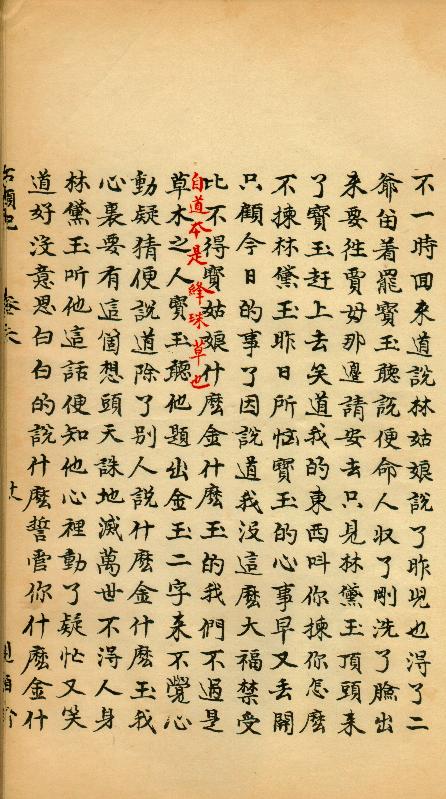 不一時回来道說林姑娘說了昨児也得了二
爺㽞着罷寳玉聽說便命人収了剛洗了臉出
来要徃賈母那邊請安去只見林黛玉頂頭来
了寳玉赶上去笑道我的東西呌你揀你怎麽
不揀林黛玉昨日所惱寳玉的心事早又丢開
只顧今日的事了因說道我没這麽大福禁受
比不得寳姑娘什麽金什麽玉的我們不過是
自道本是絳珠草也
草木之人寳玉聽他題出金玉二字来不覺心
動疑猜便說道除了别人說什麽金什麽玉我
心裏要有這箇想頭天誅地滅萬世不得人身
林黛玉听他這話便知他心裡動了疑忙又笑
道好没意思白白的說什麽誓霅你什麽金什